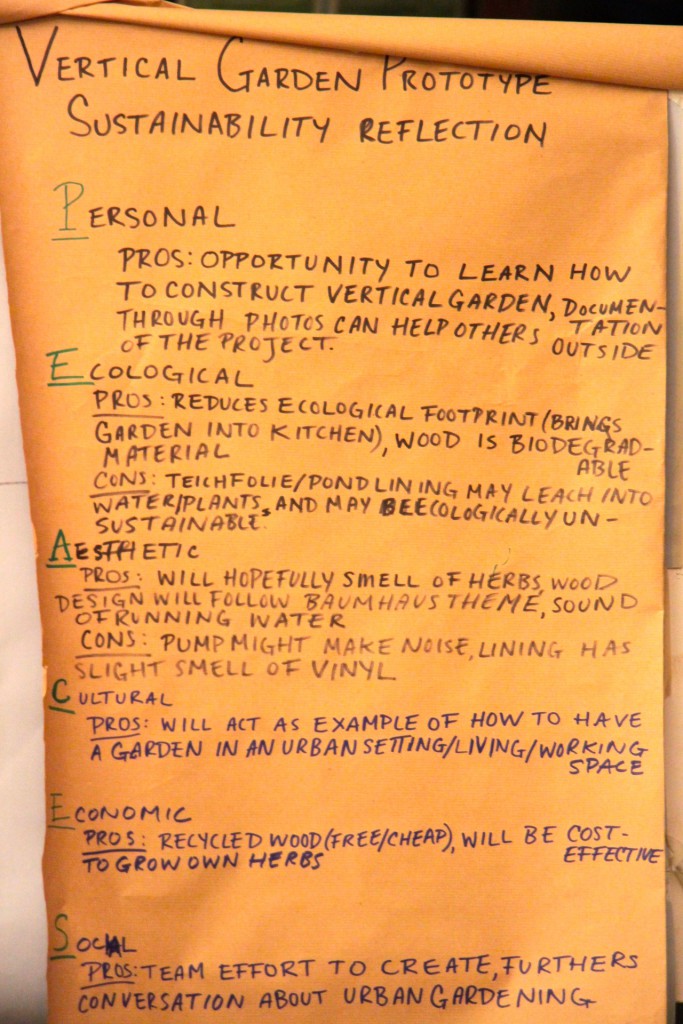 VERTICAL GARDEN PROTOTYPE
SUSTAINABILITY REFLECTION
PERSONAL
PROS: OPPORTUNITY TO LEARN HOW
TO CONSTRUCT VERTICAL GARDEN, DOCUMEN-
TATION
THROUGH PHOTOS CAN HELP OTHERS OUTSIDE
OF THE PROJECT.
ECOLOGICAL
PROS: REDUCES ECOLOGICAL FOOTPRINT (BRINGS
GARDEN INTO KITCHEN), WOOD IS BIODEGRAD-
ABLE
MATERIAL
CONS: TEICHFOLIE/POND LINING MAY LEACH INTO
WATER/PLANTS, AND MAY BE ECOLOGICALLY UN-
SUSTAINABLE.
AESTHETIC
PROS: WILL HOPEFULLY SMELL OF HERBS, WOOD
DESIGN WILL FOLLOW BAUMHAUS THEME, SOUND
OF RUNNING WATER
CONS: PUMP MIGHT MAKE NOISE, LINING HAS
SLIGHT SMELL OF VINYL
CULTURAL
PROS: WILL ACT AS EXAMPLE OF HOW TO HAVE
A GARDEN IN AN URBAN SETTING/LIVING/WORKING
SPACE
ECONOMIC
PROS: RECYCLED WOOD (FREE/CHEAP), WILL BE COST-
EFFECTIVE
TO GROW OWN HERBS
SOCIAL
PROS: TEAM EFFORT TO CREATE, FURTHERS
CONVERSATION ABOUT URBAN GARDENING